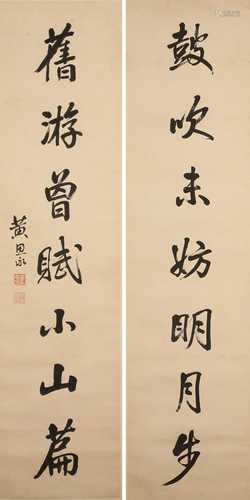 鼓吹未妨明月步
舊游曾賦小山篇
黃思永